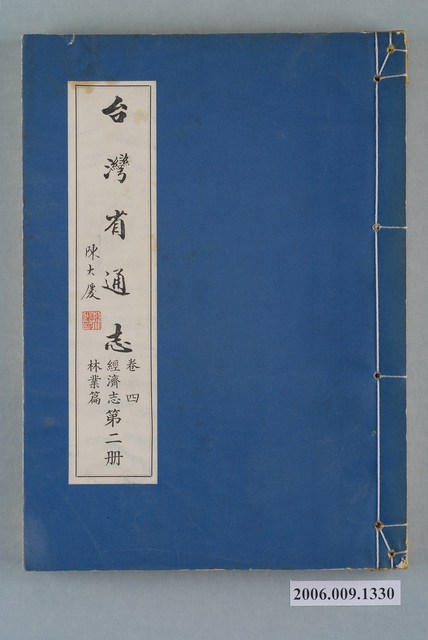 台灣省通志
陳大慶
卷四
經濟志
林業篇
第二册
2006.009.1330